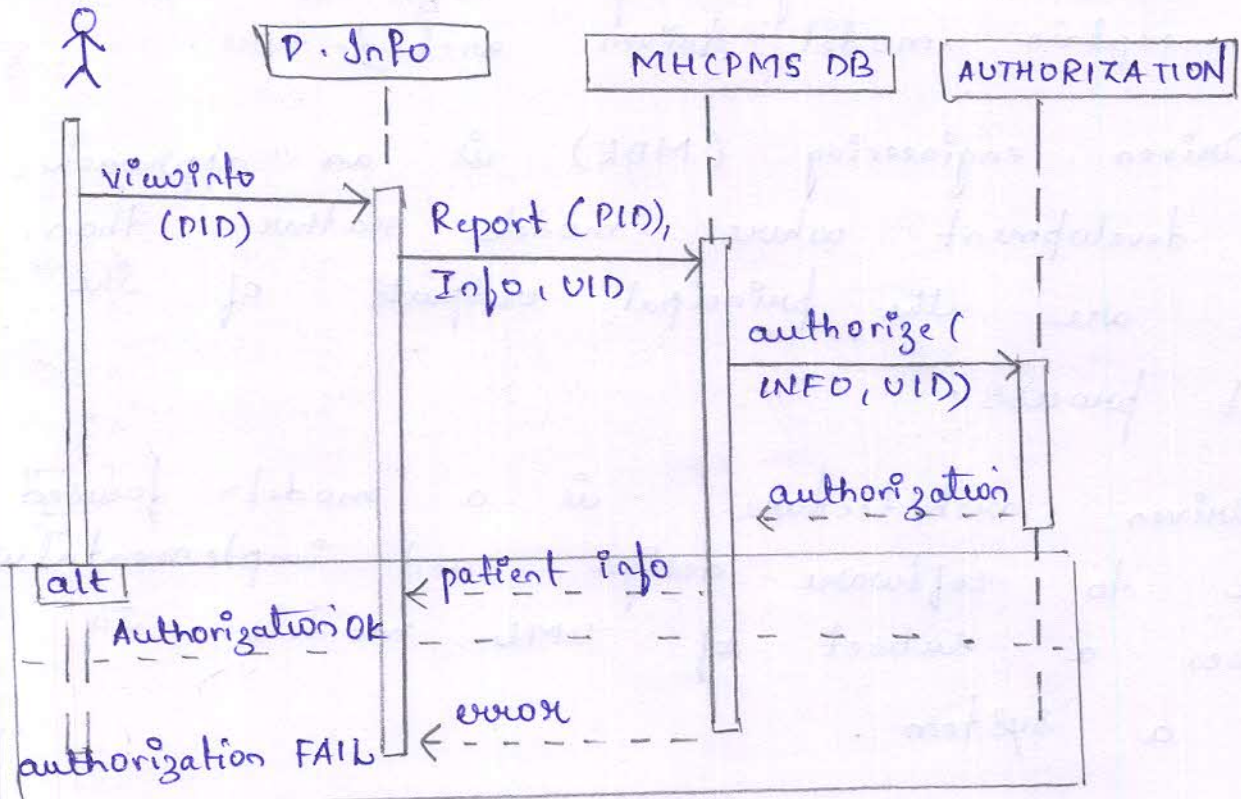 P. Info
MHCPMS DB
AUTHORIZATION
viewinfo
(PID)
Report (PID),
Info, UID
authorize(
INFO, UID)
authorization
alt
patient info
Authorization OK
error
authorization FAIL